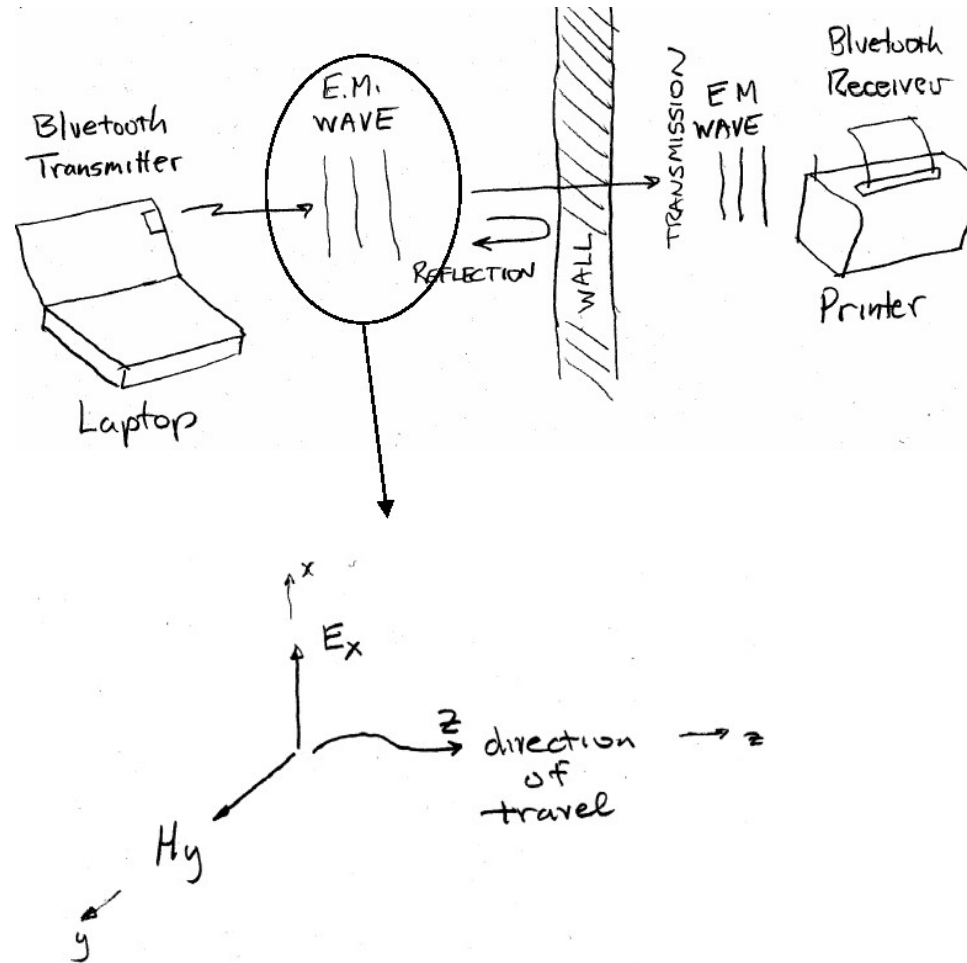 Bluetooth
Transmitter
Laptop
E.M.
WAVE
REFLECTION
WALL
TRANSMISSION
EM
WAVE
Bluetooth
Receiver
Printer
x
Ex
z
direction
of
travel
z
Hy
y